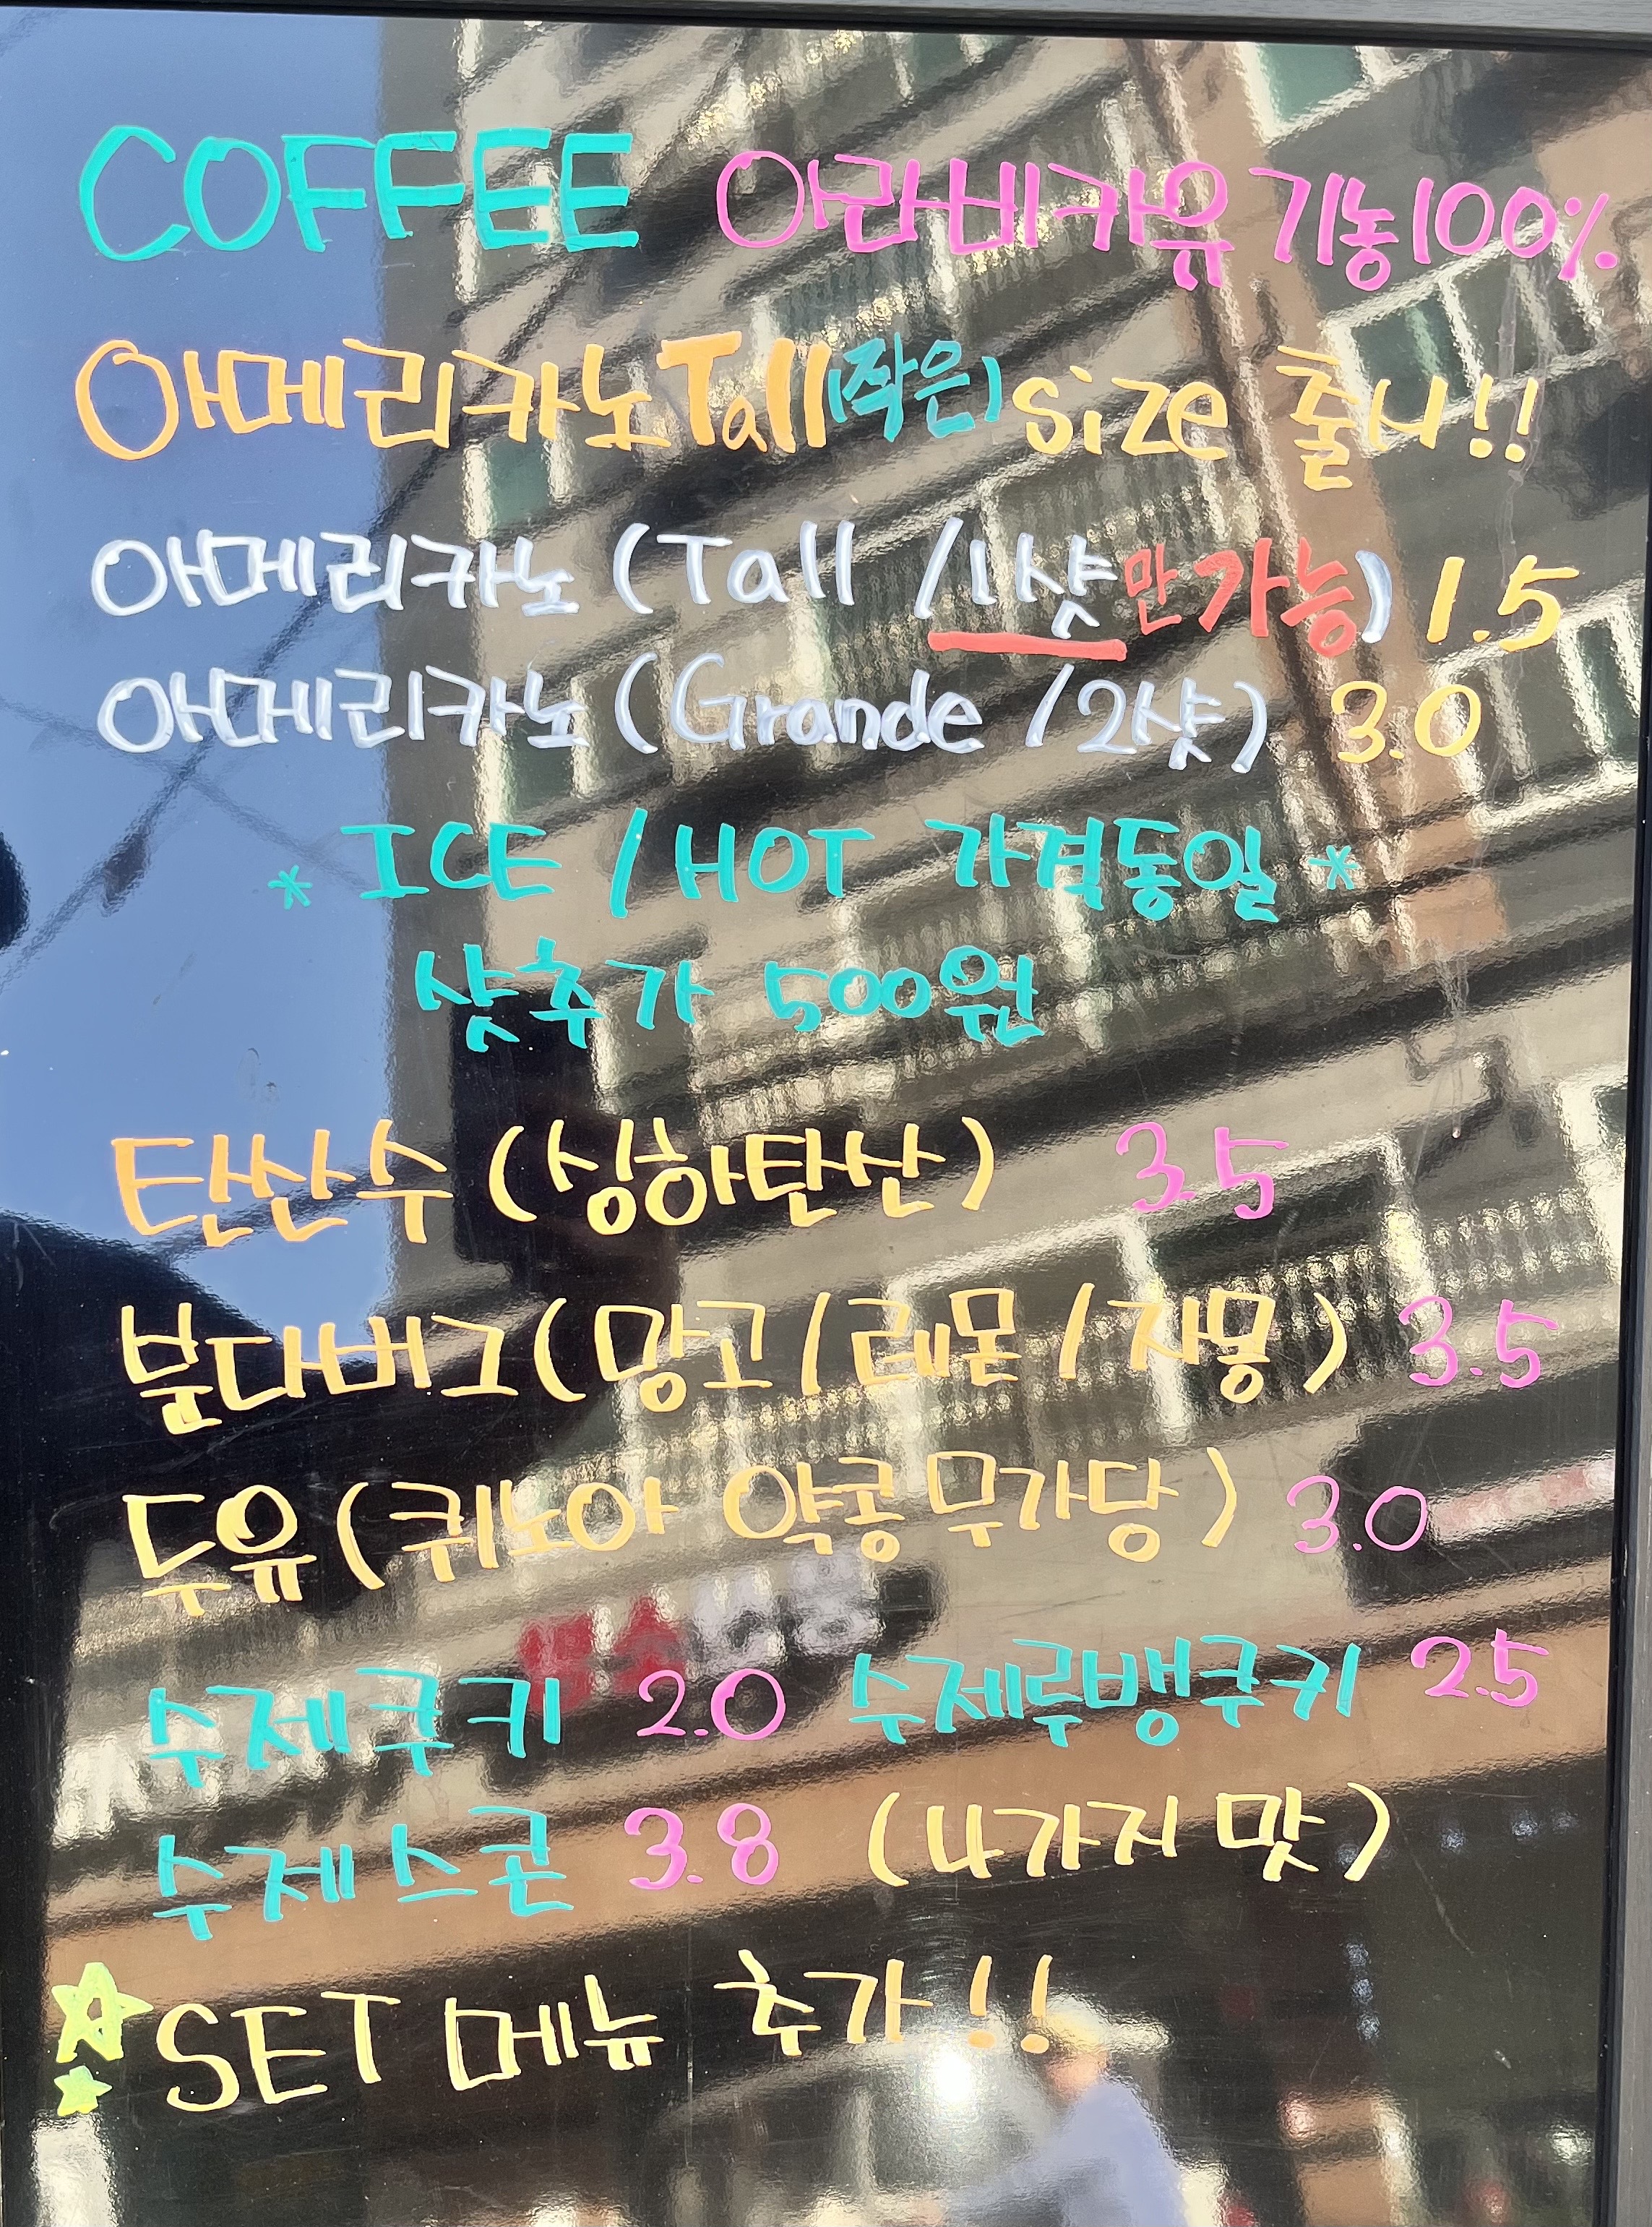 COFFEE 아라비카유기농100%
아메리카노Tall(작은)size 출시!!
아메리카노 (Tall /1샷만가능) 1.5
아메리카노 (Grande /2샷) 3.0
* ICE / HOT 가격동일 *
샷추가 500원
탄산수 (싱하탄산) 3.5
붇다버그 (망고/레몬/자몽) 3.5
두유 (퀴노아 약콩무가당) 3.0
수제쿠키 2.0 수제루뱅쿠키 2.5
수제스콘 3.8 (4가지 맛)
SET 메뉴 추가!!